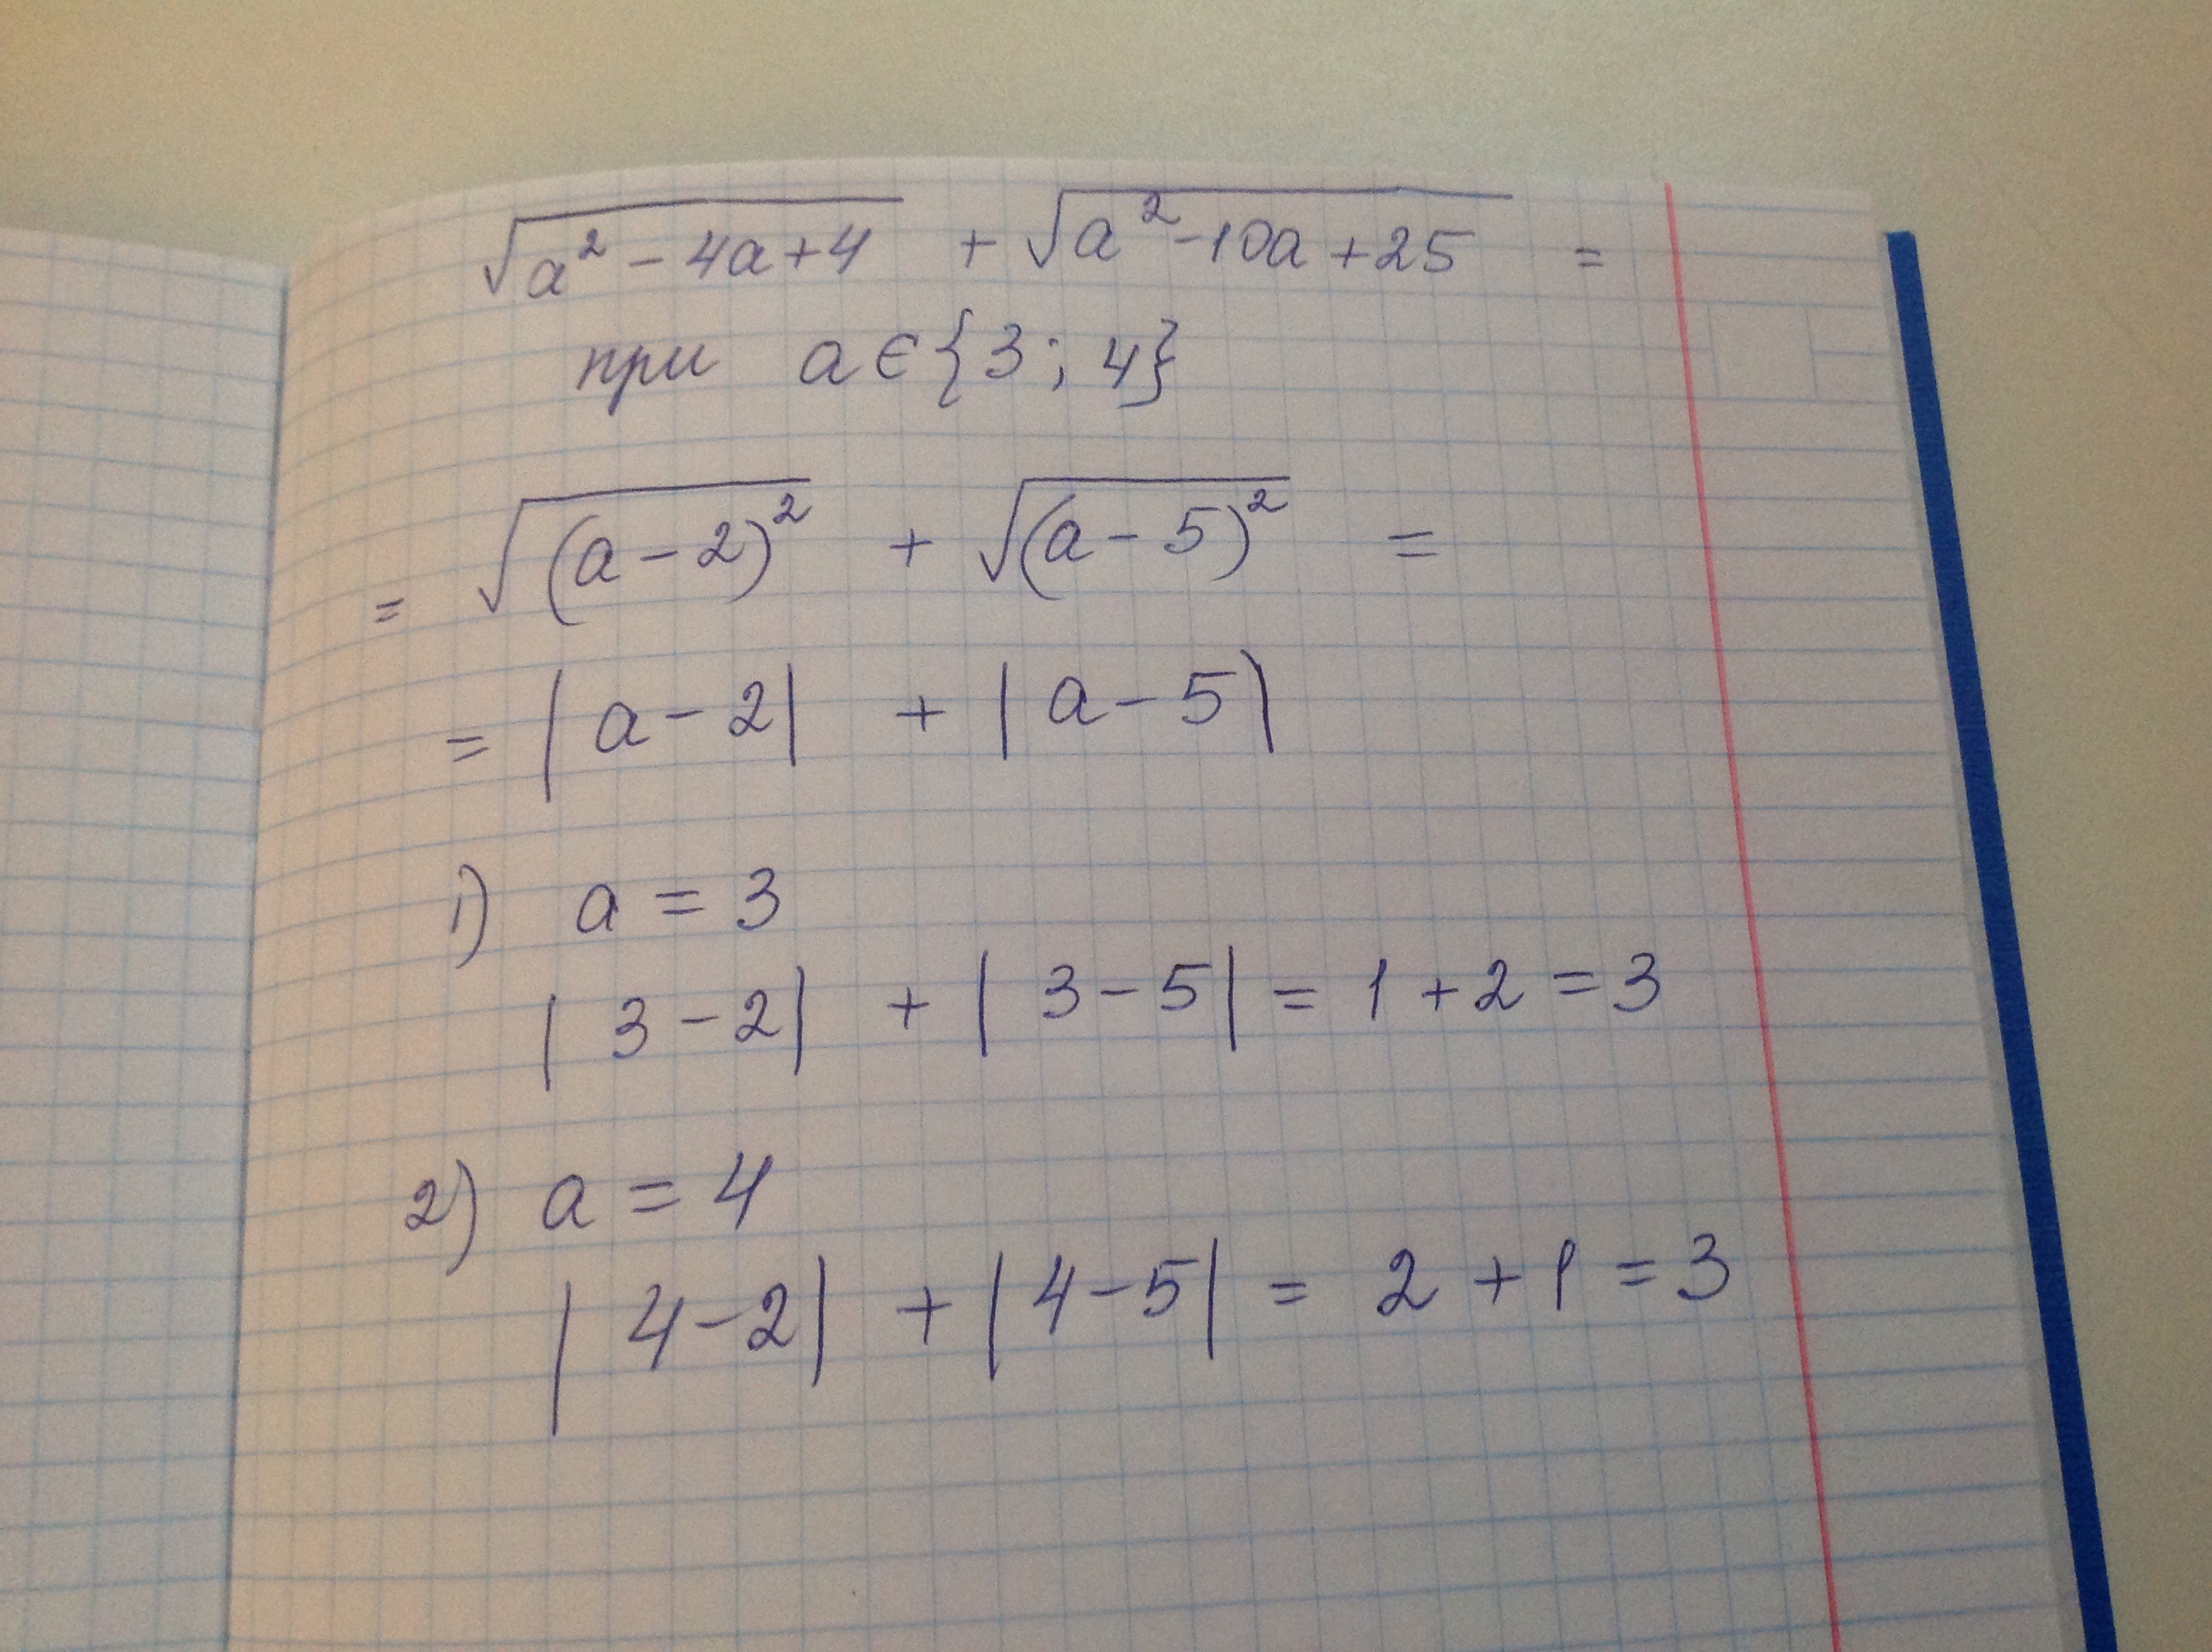 √(a² - 4a + 4) + √(a² - 10a + 25) =
при a ∈ {3; 4}
= √(a - 2)² + √(a - 5)² =
= |a - 2| + |a - 5|
1) a = 3
|3 - 2| + |3 - 5| = 1 + 2 = 3
2) a = 4
|4 - 2| + |4 - 5| = 2 + 1 = 3